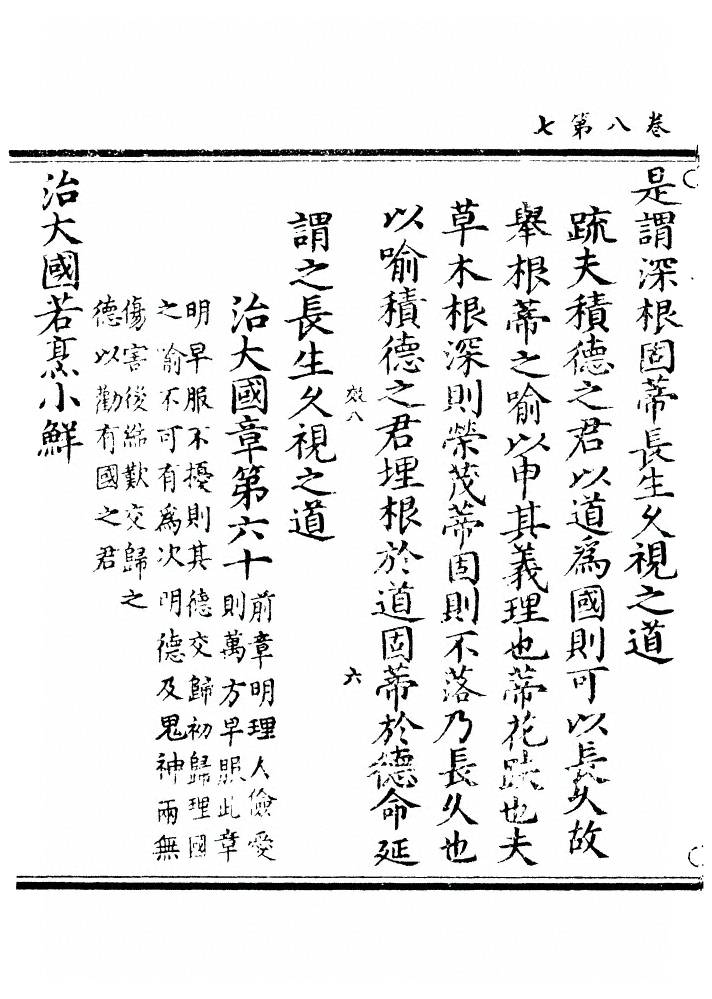 卷八第七
是謂深根固蔕長生久視之道
疏夫積德之君以道為國則可以長久故
舉根蔕之喻以申其義理也蔕花趺也夫
草木根深則榮茂蔕固則不落乃長久也
以喻積德之君埋根於道固蔕於德命延
效八 六
謂之長生久視之道
治大國章第六十
前章明理人儉愛
則萬方早服此章
明早服不擾則其德交歸初歸理國
之喻不可有為次明德及鬼神兩無
傷害後結歎交歸之
德以勸有國之君
治大國若烹小鮮